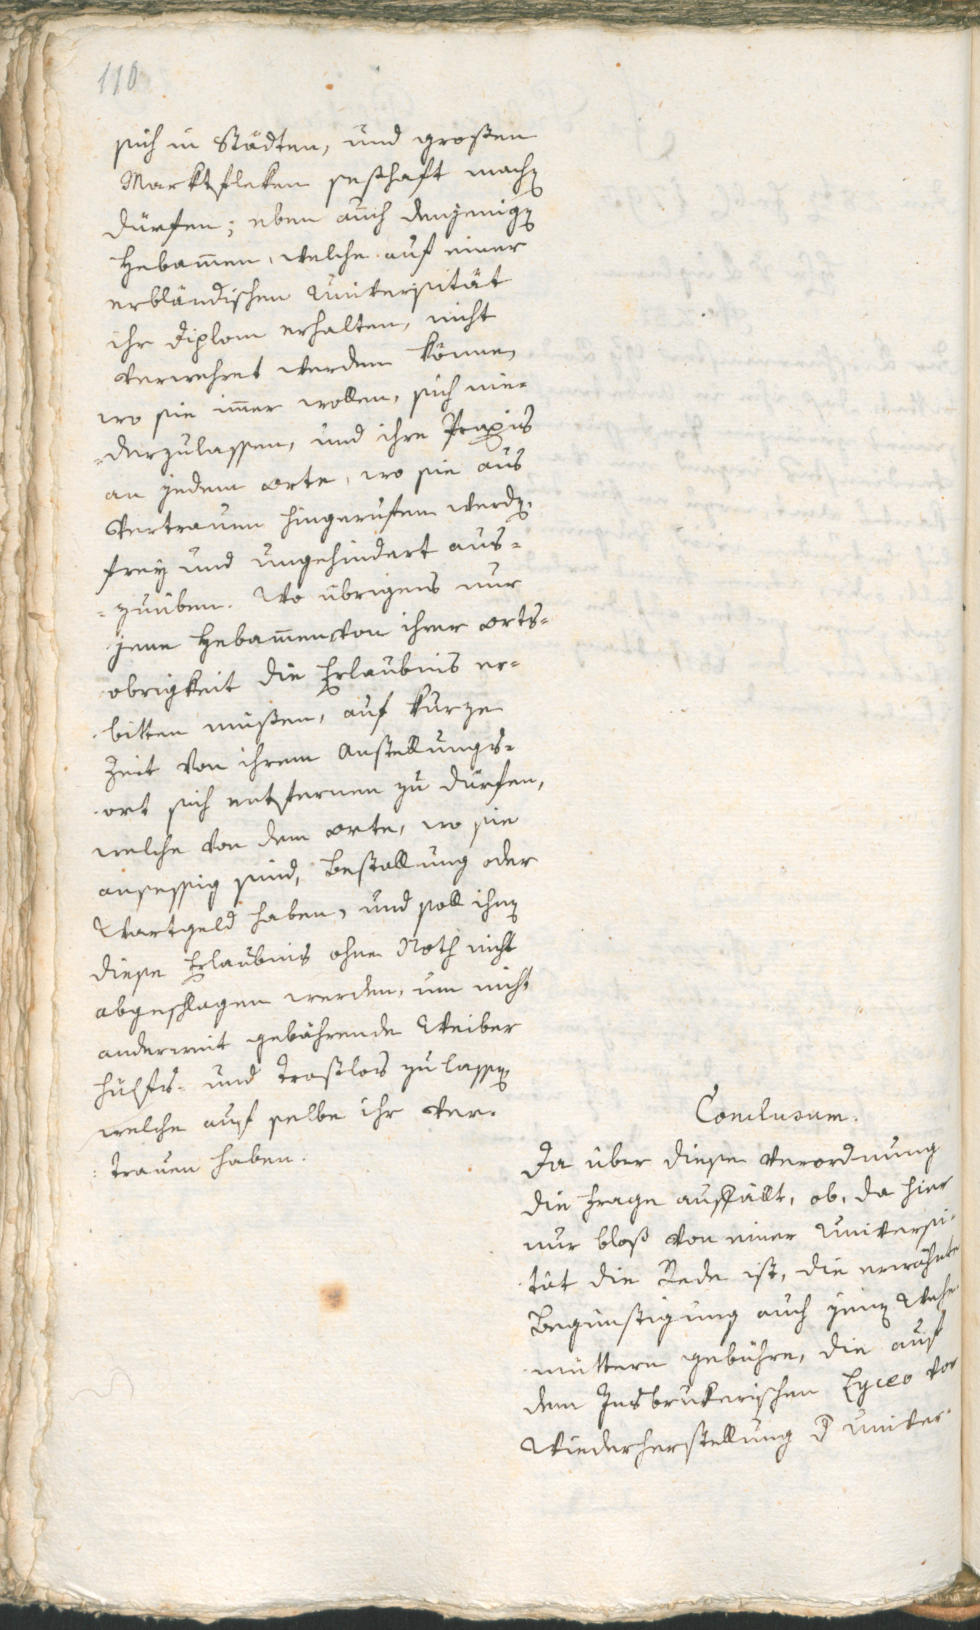 110
sich in Städten, und großen
Marktfleken seßhaft mach
dürfen; eben auch denjenig
Hebamen, welche auf einer
erbländischen Universität
ihr Diplom erhalten, nicht
verwehret werden könne,
wo sie imer wollen, sich nie-
-derzulassen, und ihre Praxis
an jedem Orte, wo sie aus
Vertrauen hingerufen werd,
frey und ungehindert aus-
-zuüben. Wo übrigens nur
jene Hebamen von ihrer Orts-
obrigkeit die Erlaubnis er-
bitten müßen, auf kurze
Zeit von ihrem Anstellungs-
ort sich entfernen zu dürfen,
welche von dem Orte, wo sie
ansessig sind, Bestallung oder
Wartgeld haben, und soll ihn
diese Erlaubnis ohne Noth nicht
abgeschlagen werden, um nicht
anderweit gebährende Weiber
hülfs- und trostlos zu lass
welche auf selbe ihr Ver-
trauen haben.
Conclusum.
Da über diese Verordnung
die Frage auffällt, ob, da hier
nur bloß von einer Universi-
tät die Rede ist, die erwähnte
Begünstigung auch jen Wehe-
müttern gebühre, die auf
dem Insbrukerischen Lyceo vor
Wiederherstellung d Univer-